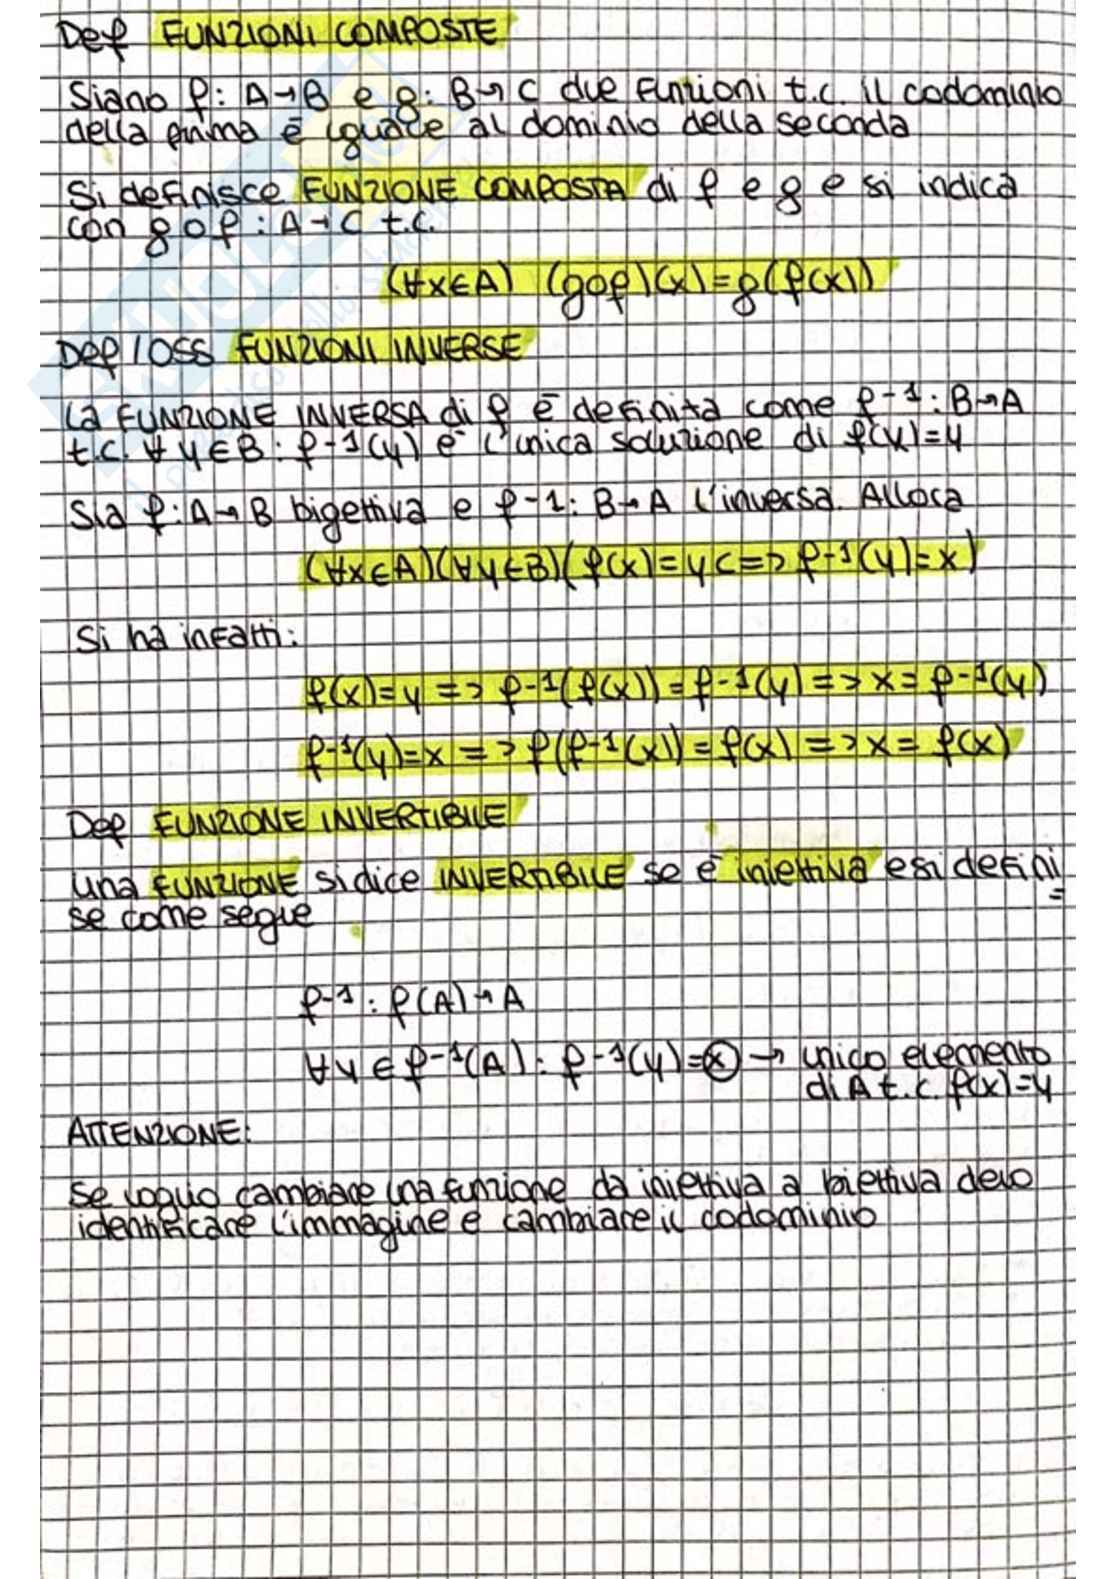 Def FUNZIONI COMPOSTE
Siano f: A→B e g: B→C due funzioni t.c. il codominio
della prima è uguale al dominio della seconda
Si definisce FUNZIONE COMPOSTA di f e g e si indica
con g o f : A→C t.c.
(∀x∈A) (gof)(x)=g(f(x))
Def/OSS FUNZIONI INVERSE
La FUNZIONE INVERSA di f è definita come f-1: B→A
t.c. ∀y∈B: f-1(y) è l'unica soluzione di f(x)=y
Sia f: A→B bigettiva e f-1: B→A l'inversa. Allora
(∀x∈A)(∀y∈B)(f(x)=y <=> f-1(y)=x)
Si ha infatti:
f(x)=y => f-1(f(x))=f-1(y) => x=f-1(y)
f-1(y)=x => f(f-1(x))=f(x) => x=f(x)
Def FUNZIONE INVERTIBILE
una FUNZIONE si dice INVERTIBILE se è iniettiva e si defini
se come segue
f-1: f(A)→A
∀y∈f-1(A): f-1(y)=x → unico elemento
di A t.c. f(x)=y
ATTENZIONE:
Se voglio cambiare una funzione da iniettiva a biettiva devo
identificare l'immagine e cambiare il codominio